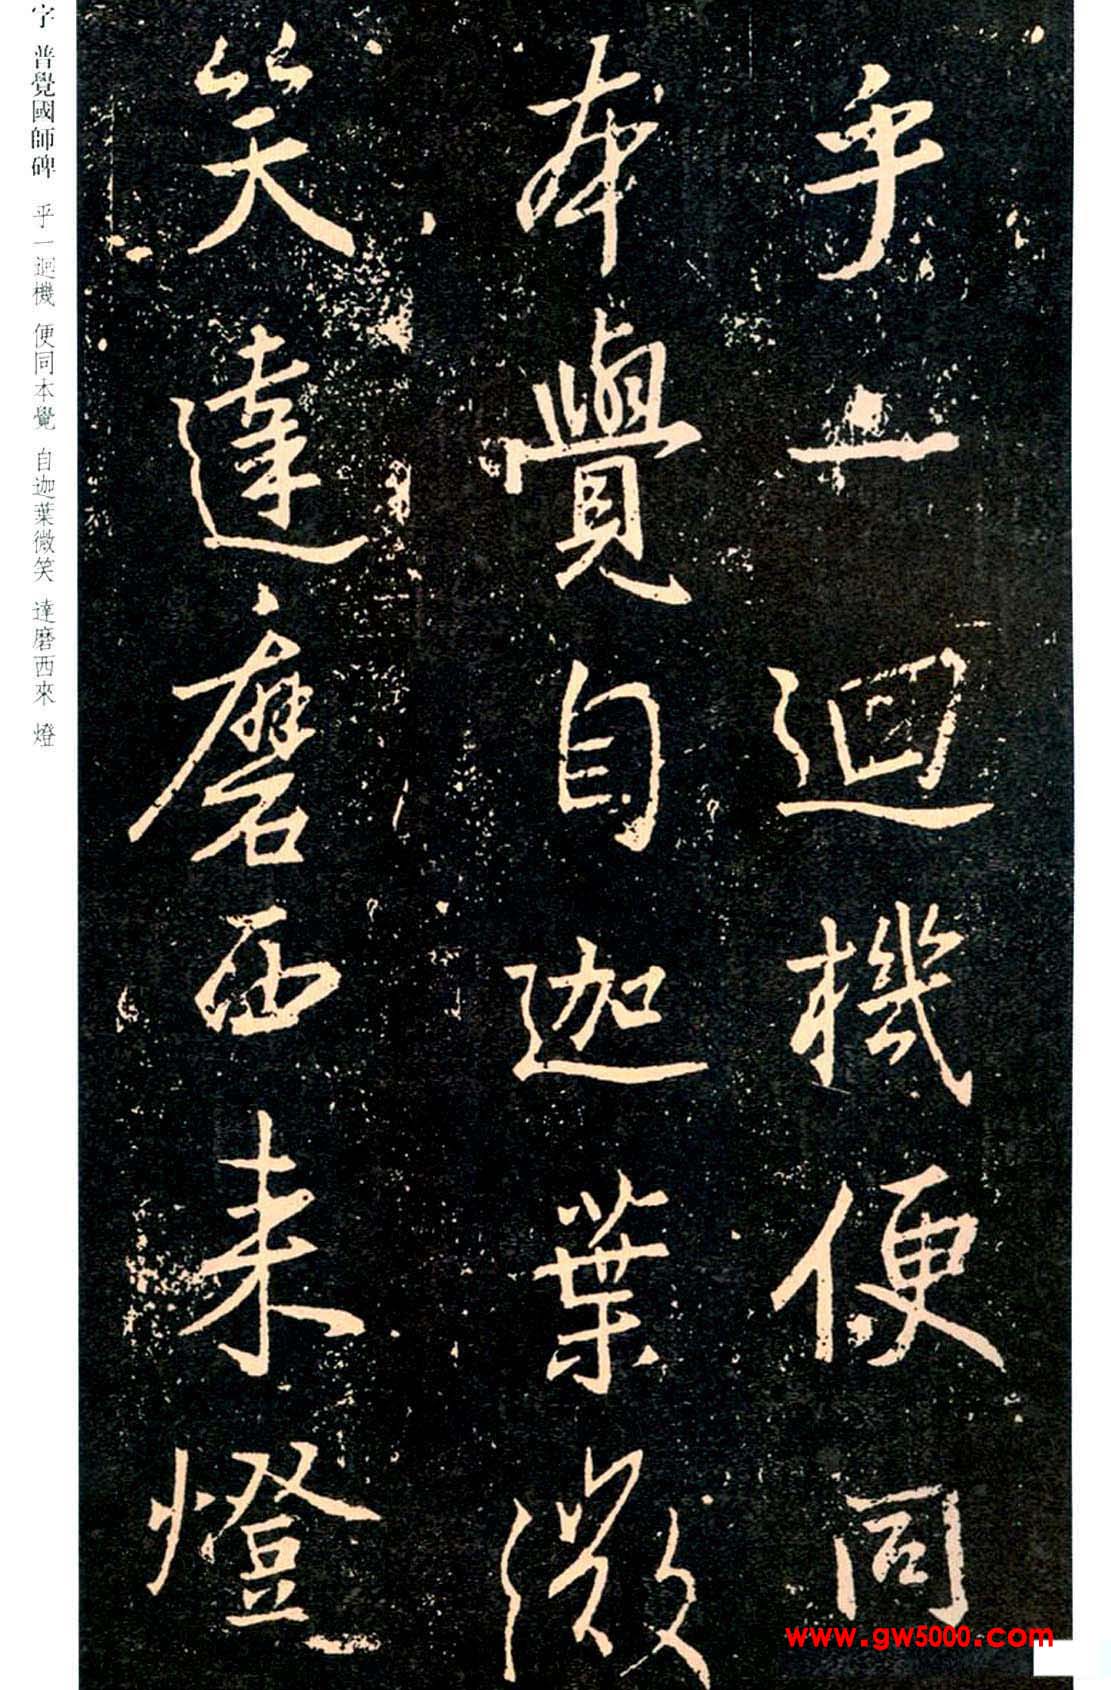 乎一迴機便同
本覺自迦葉微
笑達磨西来燈
字 普覺國師碑 乎一迴機 便同本覺 自迦葉微笑 達磨西來 燈
www.gw5000.com